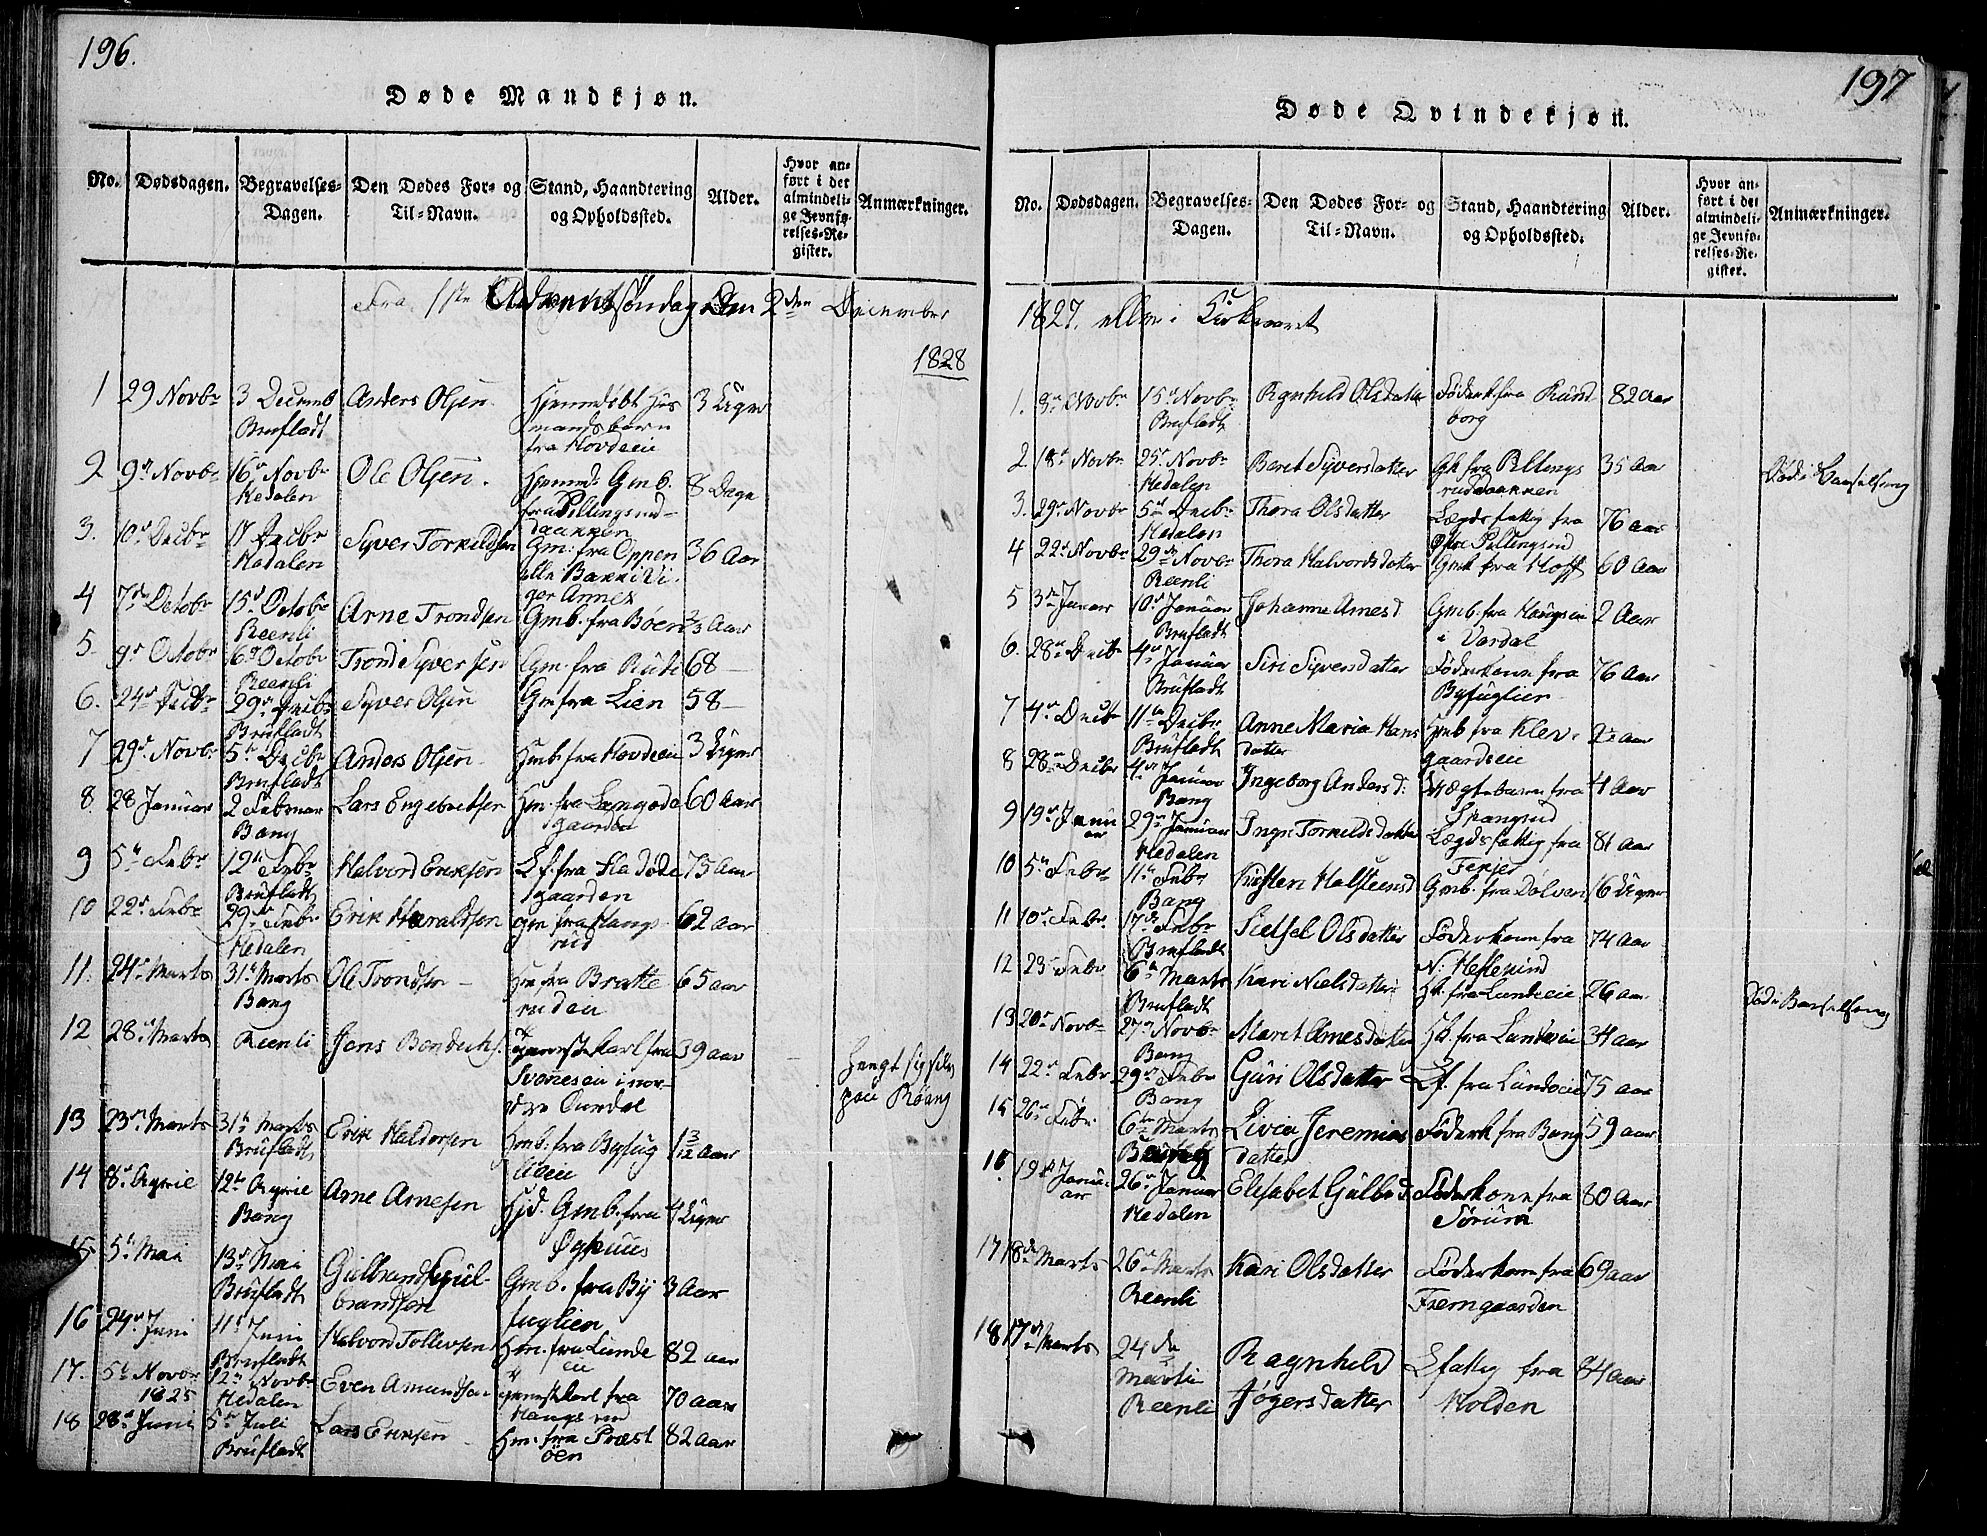 196.
Døde Mandkjøn.
No. Dødsdagen. Begravelses-Dagen. Den Dødes For- og Til-Navn. Stand, Haandtering og Opholdssted. Alder. Hvor anført i det almindelige Jevnførelses-Register. Anmærkninger.
Fra 1ste Adventsøndag den 2den December
1828
1 29 Novbr 3 Decemb Brufladt Anders Olsen Hjemmdøbt Husmandsbarn fra Hovdeeie 3 Uger
2 9n Novbr 16n Novbr Hedalen Ole Olsen. Hjemmd: Gmb. fra Pillingsrudbakken 8 Dage
3. 10n Decbr 17 Decbr Hedalen Syver Torkildsen Gm: fra Oppen 36 Aar
4 7de Octobr 15de Octobr Reenli Arne Trondsen Gmb. fra Bøen Aar
5 9n Octobr 16n Octobr Reenli Trond Syversen Gm. fra Ruste 68 —
6. 24n Decbr 29n Decbr Brufladt Syver Olsen Gm fra Lien 58 —
7 29n Novbr 5te Decbr Brufladt Anders Olsen Hmb. fra Hovdeeie 3 Uger
8 28 Januar 2 Februar Bang Lars Engebretsen Hm. fra Langodegaarden 60 Aar
9 5te Febr 12te Febr Brufladt Halvord Eriksen Lf. fra Fladødegaarden 75 Aar
10 22n Febr 29n Febr Hedalen Erik Haraldsen Gm fra Haugsrud 62 Aar
11. 24n Marts 31te Marts Bang Ole Trondsen — Hm fra Bratterudeie 65 aar
12 28n Marts Reenli Jens Bendichs. Svenes i nordre Aurdal 39 aar Hengt sig selv paa Røang
13 23n Marts 31te Marts Brufladt Erik Haldorsen Hmb. fra Byfuglieeie 1 3/12 Aar
14 8n Aprie 12te Aprie Bang Arne Arnesen Hjd. Gmb. fra 4 Uger
15 5te Mai 13n Mai Brufladt Gulbrand Gulbrandsen Gmb. fra Byfuglien 3 Aar
16 24n Juni 11te Juni Brufladt Halvord Tollevsen Hm. fra Lundeeie 82 aar
17. 5te Novbr 1825 12n Novbr Hedalen Even Amundsen fra Haugsrud 70 aar
18 28n Juni 5te Juli Brufladt Lars Eriksen Hm. fra Præstøen 82 aar
197
Døde Qvindekjøn.
No. Dødsdagen. Begravelses-Dagen. Den Dødes For- og Til-Navn. Stand, Haandtering og Opholdssted. Alder. Hvor anført i det almindelige Jevnførelses-Register. Anmærkninger.
1827. eller i Kirkeaaret
1. 8n Novbr 15n Novbr Brufladt Ragnhild Olsdatter Føderk. fra Rundborg 82 aar
2 18n Novbr 25n Novbr Hedalen Berit Syversdatter Gk fra Pillingsrudbakken 35 aar Død i Barselseng
3. 29n Novbr 5te Decbr Hedalen Thora Olsdatter Lægdsfattig fra Pillingsrud 76 aar
4 22n Novbr 29n Novbr Reenli Thora Halvordsdatter Gmk fra Hoff 60 Aar
5 3n Januar 10n Januar Brufladt Johanne Arnesd Gmb. fra Haugseie i Vardal 2 Aar
6. 28n Decbr 4n Januar Brufladt Siri Syversdatter Føderkone fra Byfuglien 76 Aar
7 4n Decbr 11te Decbr Brufladt Anne Maria Hansdatter Hmb fra Klevgaardseie aar
8 28n Decbr 4n Januar Bang Ingeborg Andersd: barn fra Spangrud 4 Aar
9 19n Januar 29n Januar Hedalen Inger Torkildsdatter Lægdsfattig fra 81 aar
10 5te Febr 11te Febr Bang Kirsten Halsteensd Gmb. fra Dølven 16 Uger
11 10n Febr 17de Febr Brufladt Sietsel Olsdatter Føderkone fra N: 74 Aar
12 23n Febr 6te Marts Brufladt Kari Nielsdatter Hk. fra Lundeeie 26 aar Død i Barselseng
13 20n Novbr 27n Novbr Bang Marit Arnesdatter Hk. fra Lundeeie 34 aar
14 22n Febr 29n Febr Bang Guri Olsdatter Lf. fra Lundeeie 75 aar
15 26n Febr 6te Marts Livia Jeremiasdatter Føderk fra Bang 59 aar
16 19de Januar 26n Januar Hedalen Elisabet Gulbd. Føderkone fra Sørum 80 Aar
17 18de Marts 26n Marts Reenli Kari Olsdatter Føderkone fra Fremgaarden 69 aar
18 17n Marts 24de Martii Reenli Ragnhild Jøgersdatter Lfattig fra Holden 84 aar